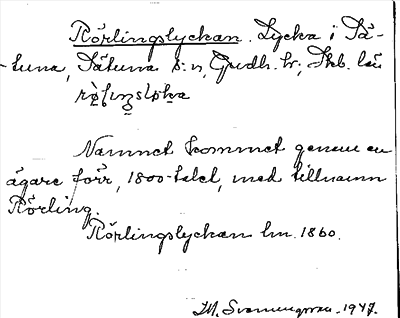 Rörlingslyckan. Lycka i Sä-
-tuna, Sätuna s:n, Gudh. hr, Skb. län
Namnet kommet genom en
ägare förr, 1800-talet, med tillnamn
Rörling.
Rörlingslyckan hm. 1860.
1947.